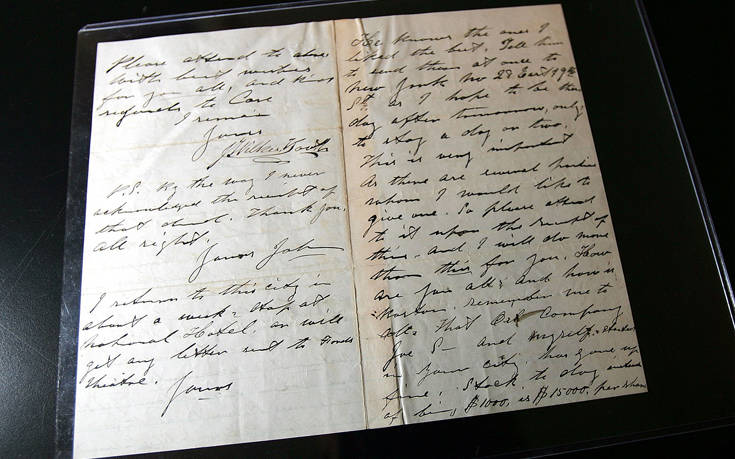 Please attend to above
With best wishes
for you all, and kind
regards to
I remain
Yours
J. Wilkes Booth
P.S. By the way I never
acknowledged the receipt of
that deed. Thank you.
all right.
Yours John
I return to this city in
about a week: stop at
National Hotel, or will
get any letter sent to Fords
Theatre.
Yours
He knows the ones I
liked the best. Tell him
to send them at once to
New York No 28 East 19th
St. as I hope to be there
day after tomorrow, only
to stay a day or two.
This is very important
As there are several parties
whom I would like to
give one. So please attend
to it upon the receipt of
this. And I will do more
than this for you. How
are you all; and how is
remember me to
all. That Oil Company
Joe S— and myself, started
in your city has gone up
fine. Stock to day instead
of being $1000, is $15000, per share